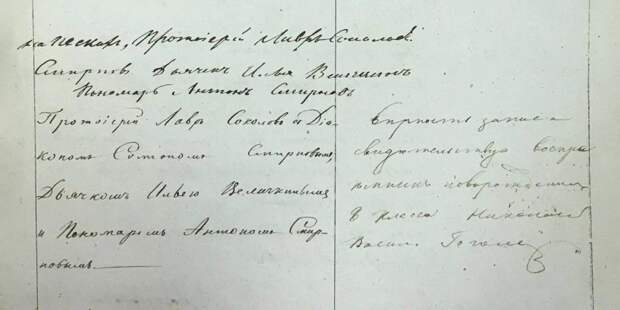 на пескахъ, Протоіерей Лавръ Соколов
Смирновъ Дьячекъ Илья Величкинъ
Пономарь Антонъ Смирновъ
Протоіерей Лавръ Соколовъ съ Діа-
кономъ Смирновымъ,
Дьячкомъ Ильею Величкинымъ
и Пономаремъ Антономъ Смир-
новымъ
записи
свидѣтельствую воспрі
емникъ
класса Николай
Васил. Гоголь